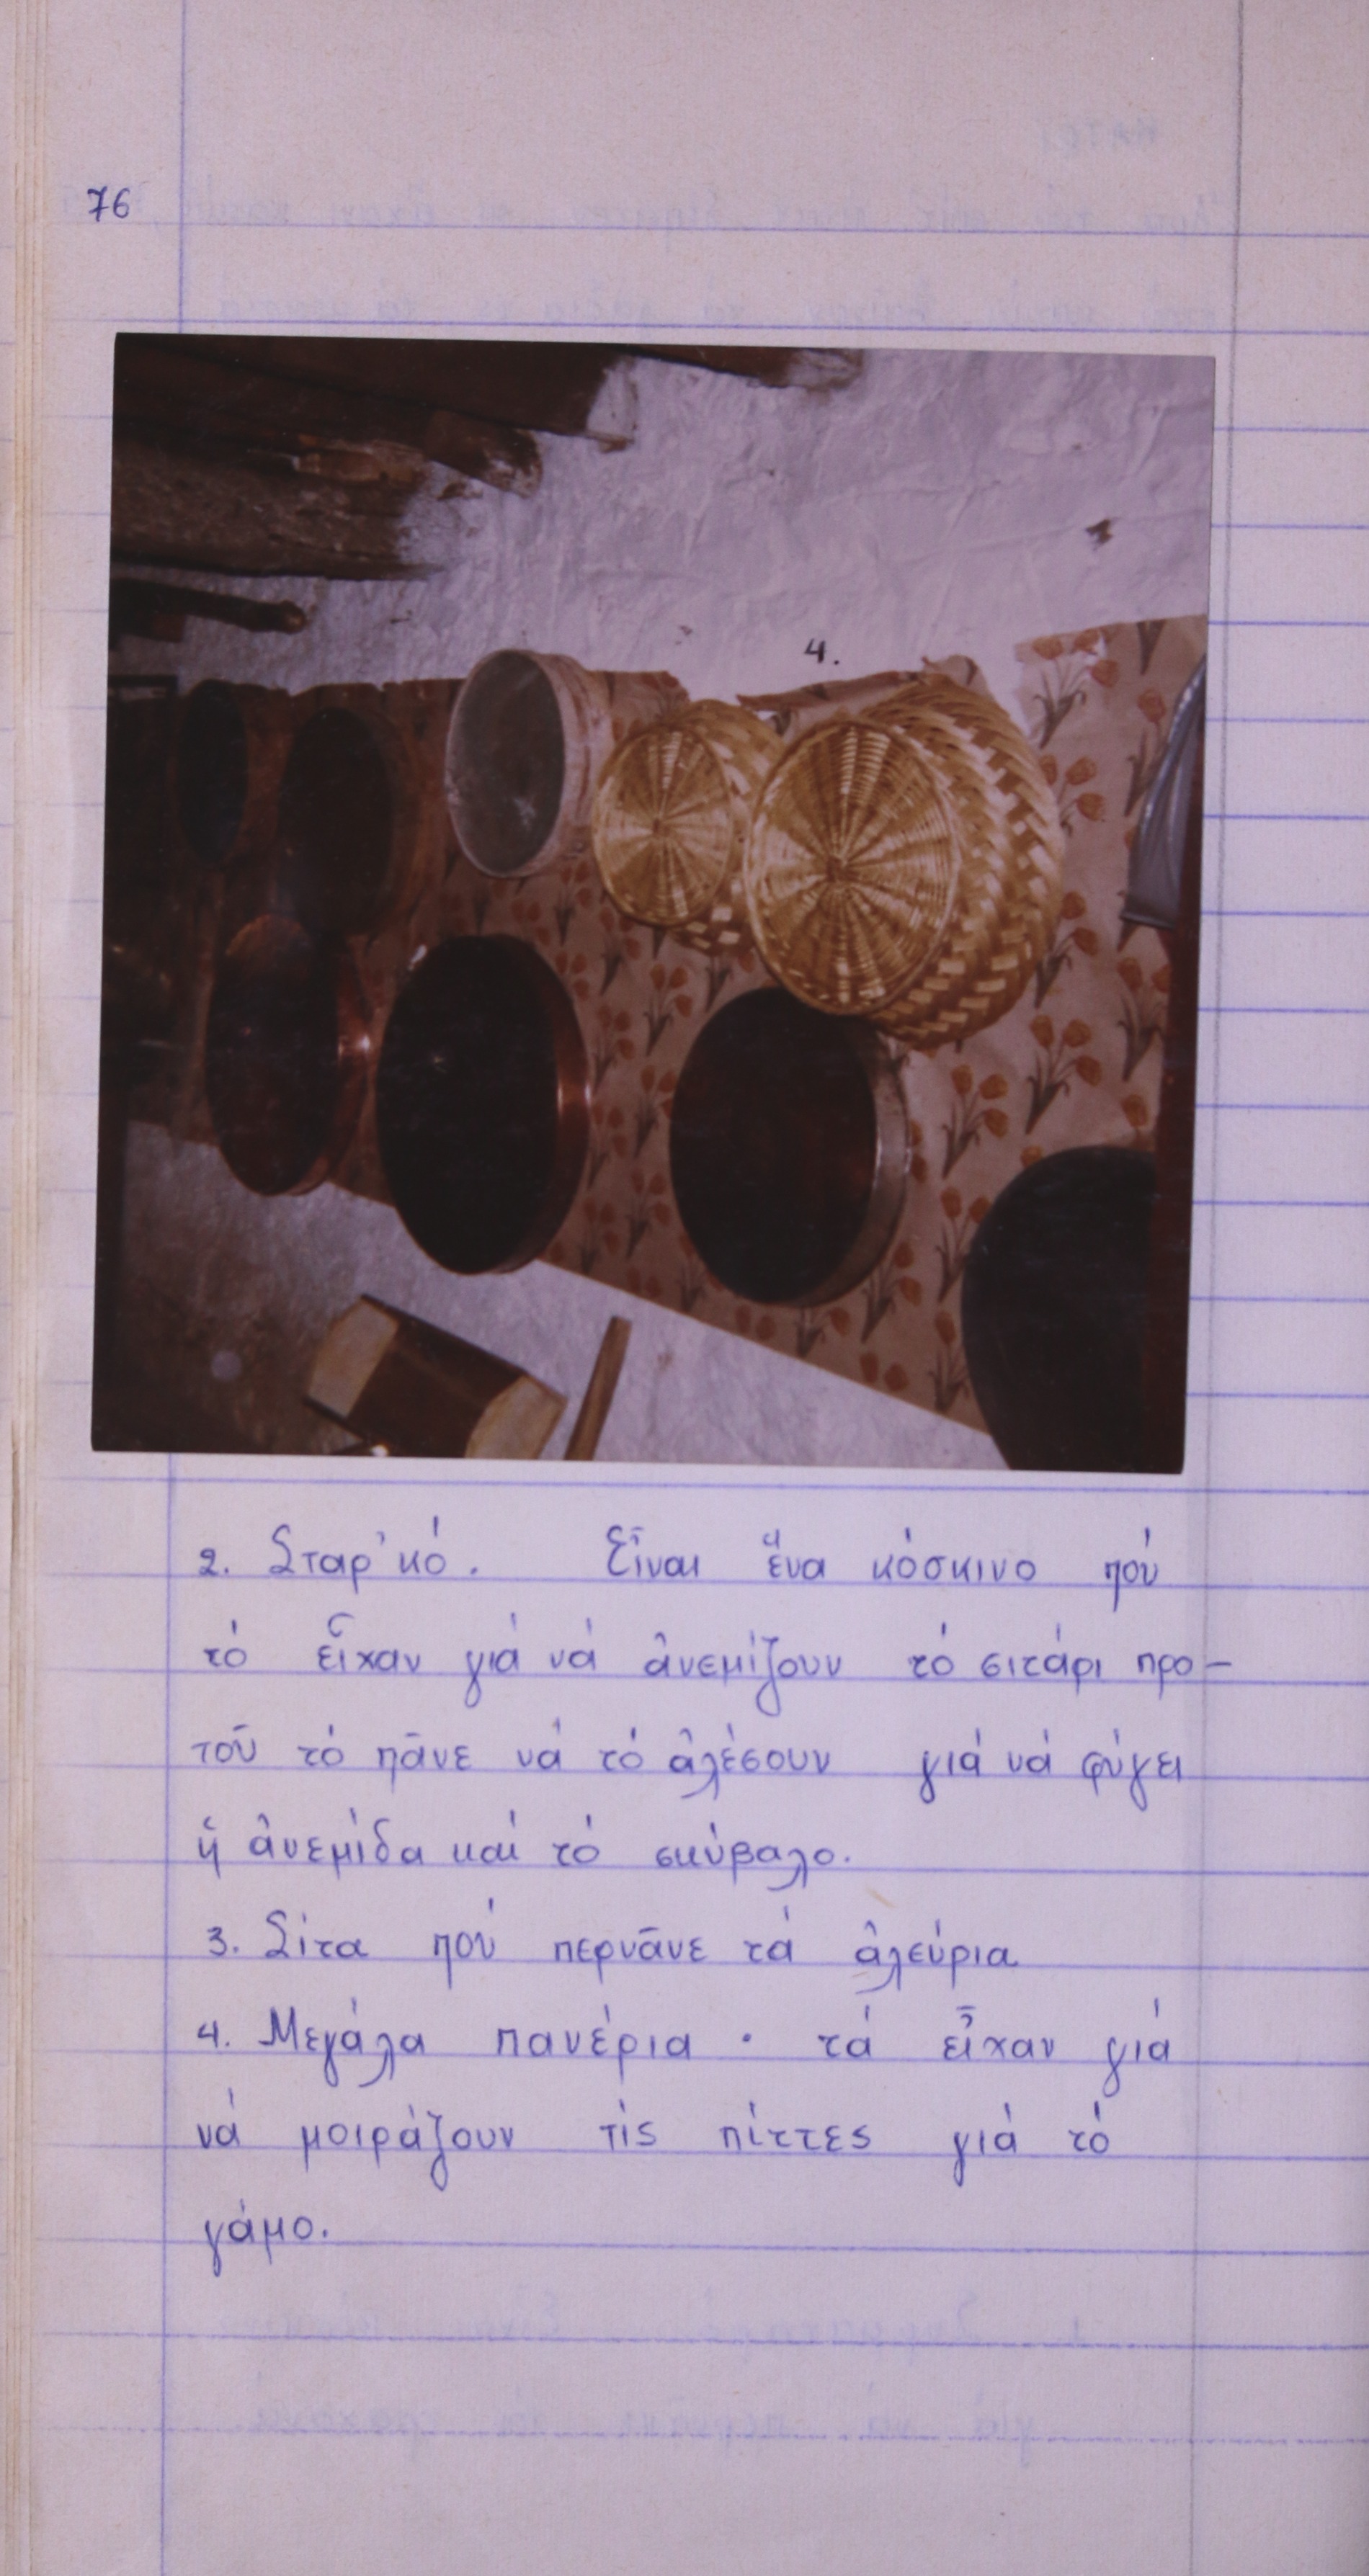 76
4.
2. Σταρ'κό. Εἶναι ἕνα κόσκινο πού
τό εἶχαν γιά νά ἀνεμίζουν τό σιτάρι προ-
τοῦ τό πᾶνε νά τό ἀλέσουν γιά νά φύγει
ἡ ἀνεμίδα καί τό σκύβαλο.
3. Σίτα πού περνᾶνε τά ἀλεύρια
4. Μεγάλα πανέρια · τά εἶχαν γιά
νά μοιράζουν τίς πίττες γιά τό
γάμο.